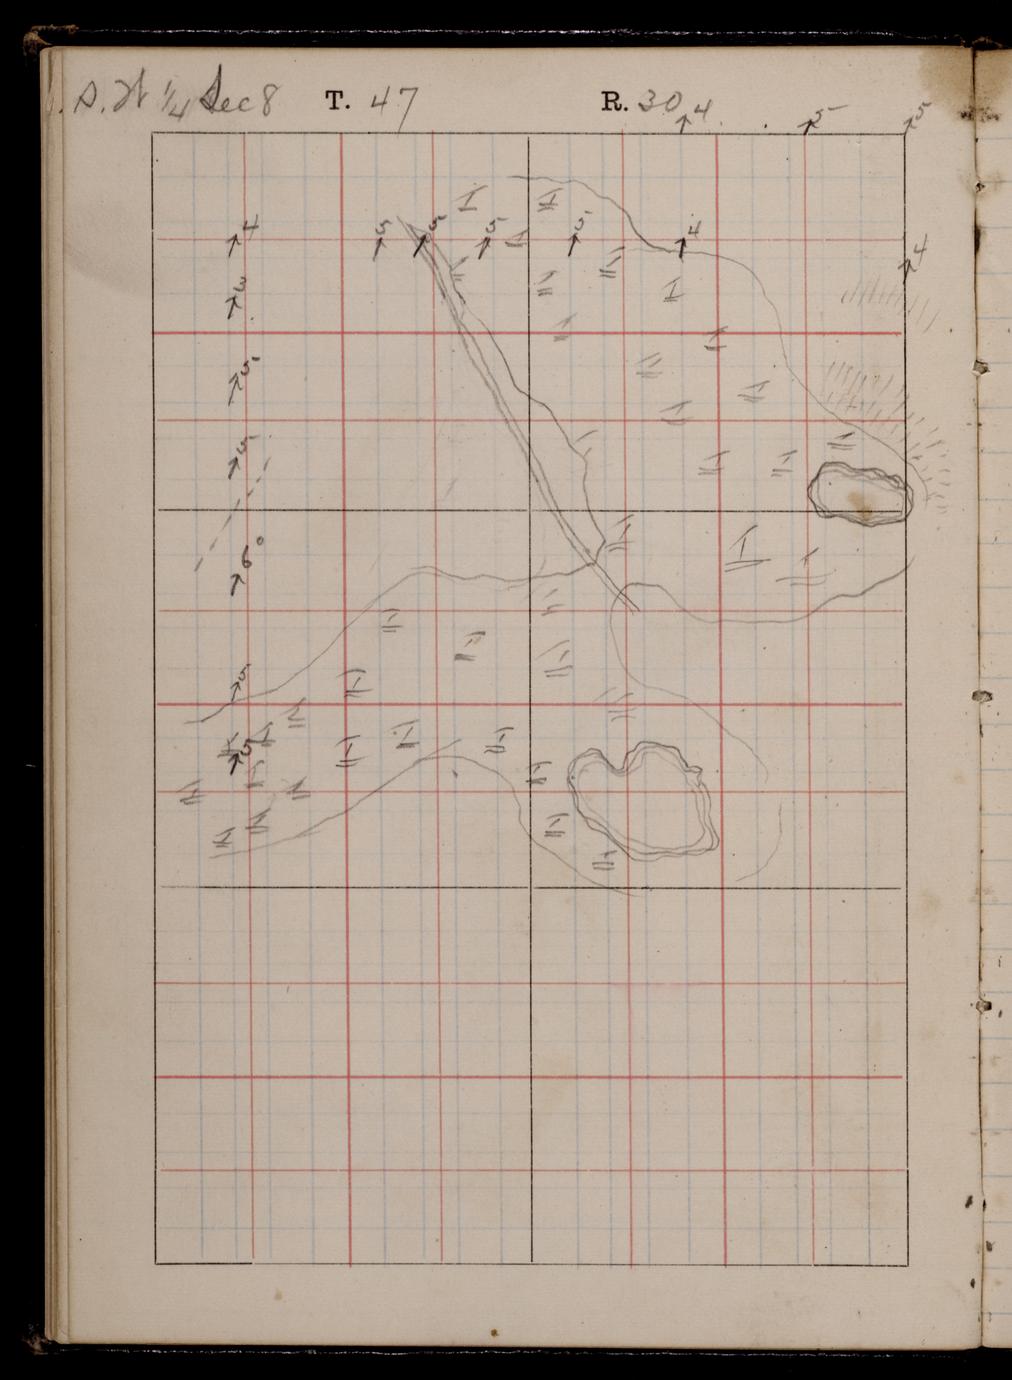 S.W 1/4 Sec 8 T. 47 R. 30
4 5 5
4 5 5 5 5 4 4
3
5
5
6°
5
5